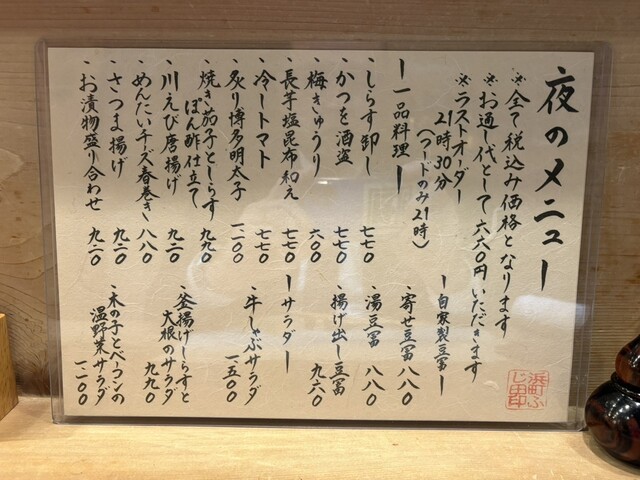 夜のメニュー
※全て税込み価格となります
※お通し代として六六〇円いただきます
※ラストオーダー
21時30分
(フードのみ21時)
ー一品料理ー
・しらす卸し 七七〇
・かつを酒盗 七七〇
・梅きゅうり 六〇〇
・長芋塩昆布和え 七七〇
・冷しトマト 七七〇
・炙り博多明太子 一、一〇〇
・焼き茄子としらす
ぽん酢仕立て 九九〇
・川えび唐揚げ 九二〇
・めんたいチーズ春巻き 八八〇
・さつま揚げ 九二〇
・お漬物盛り合わせ 九二〇
ー自家製豆冨ー
・寄せ豆冨 八八〇
・湯豆冨 八八〇
・揚げ出し豆冨 九六〇
ーサラダー
・牛しゃぶサラダ 一五〇〇
・釜揚げしらすと
大根のサラダ 九九〇
・木の子とベーコンの
温野菜サラダ 一、二〇〇
浜町ふ
じ田印